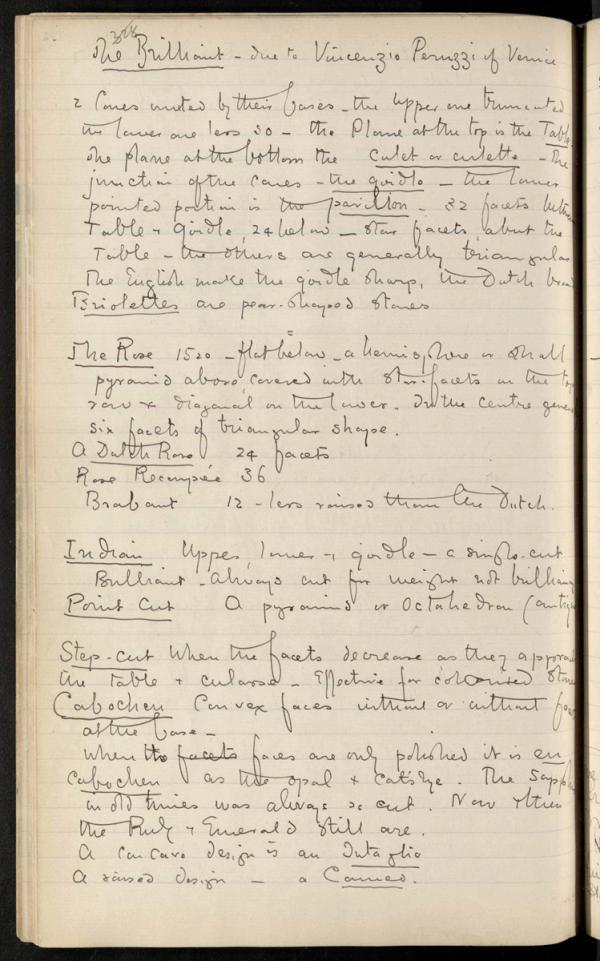 328
The Brilliant - due to Vincenzio Peruzzi of Venice
2 Cones united by their bases - the upper one truncated
the lower one less so - the Plane at the top is the Table
The plane at the bottom the culet or culette - The
junction of the cones - the girdle - the lower
pointed portion is the pavilion - 32 facets betw
Table & Girdle, 24 below - star facets about the
Table - the others are generally triangular
The English make the girdle sharp, the Dutch broad
Briolettes are pear-shaped stones
The Rose 1520 - flat below - a hemisphere or small
pyramid above, covered with star facets on the top
row & diagonal on the lower. In the centre gene
six facets of triangular shape.
A Dutch Rose 24 facets
Rose Recoupée 36
Brabant 12 - less raised than the Dutch.
Indian Upper, lower & girdle - a single-cut
Brilliant - always cut for weight not brillian
Point Cut A pyramid or Octahedron (antiq
Step-cut When the facets decrease as they approac
the table & - Effective for coloured stone
Cabochen Convex faces with or without fac
at the base -
When the facets faces are only polished it is en
cabochen as the opal & catseye. The Sapph
in old times was always so cut. Now often
the Ruby & Emerald still are.
A concave design is an Intaglio
A raised design - a Cameo.